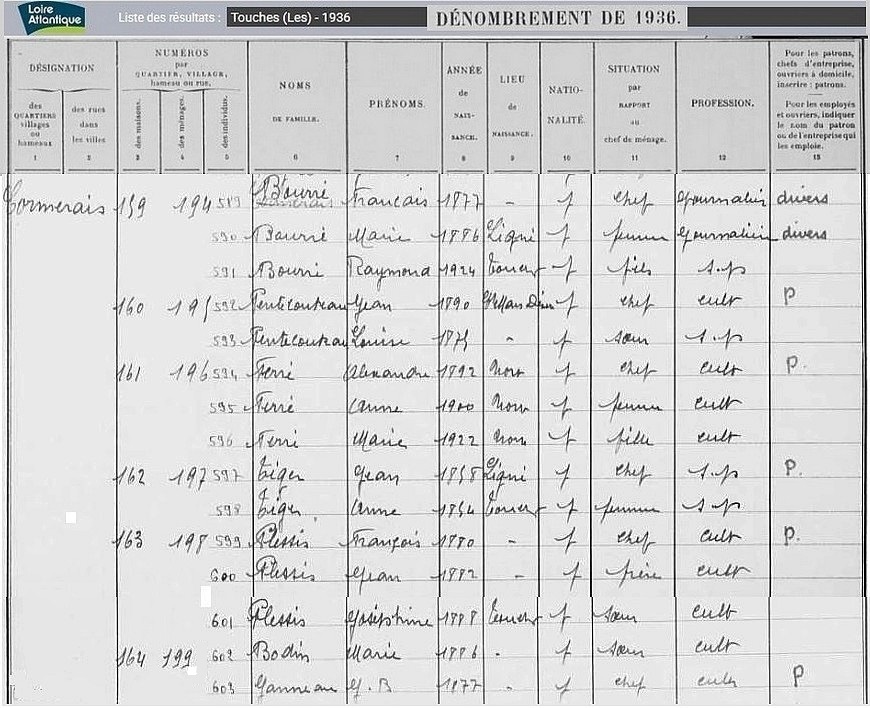 Loire Atlantique
Liste des résultats : Touches (Les) - 1936
DÉNOMBREMENT DE 1936.
DÉSIGNATION
des QUARTIERS villages ou hameaux
des rues dans les villes
NUMÉROS par QUARTIER, VILLAGE, hameau ou rue.
des maisons.
des ménages.
des individus.
NOMS DE FAMILLE.
PRÉNOMS.
ANNÉE de NAISSANCE.
LIEU de NAISSANCE.
NATIONALITÉ.
SITUATION par RAPPORT au chef de ménage.
PROFESSION.
Pour les patrons, chefs d'entreprise, ouvriers à domicile, inscrire : patrons.
Pour les employés et ouvriers, indiquer le nom du patron ou de l'entreprise qui les emploie.
1 2 3 4 5 6 7 8 9 10 11 12 13
Cormerais 159 194 589 Bourré Francais 1877 - f chef journalier divers
590 Bourré Marie 1886 Ligné f femme journalière divers
591 Bourré Raymond 1924 Touches f fils s.p
160 195 592 Pentecouteau Jean 1890 f chef cult P
593 Pentecouteau Louise 1875 - f sœur s.p
161 196 594 Ferré Alexandre 1892 Nort f chef cult P.
595 Ferré Anne 1900 Nort f femme cult
596 Ferré Marie 1922 Nort f fille cult
162 197 597 Tiger Jean 1858 Ligné f chef s.p P.
598 Tiger Anne 1854 Touches f femme s.p
163 198 599 Plessis François 1880 - f chef cult P.
600 Plessis Jean 1882 - f frère cult
601 Plessis Joséphine 1888 Touches f sœur cult
164 199 602 Bodin Marie 1886 - f sœur cult
603 Ganneau J.B 1877 - f chef cult P